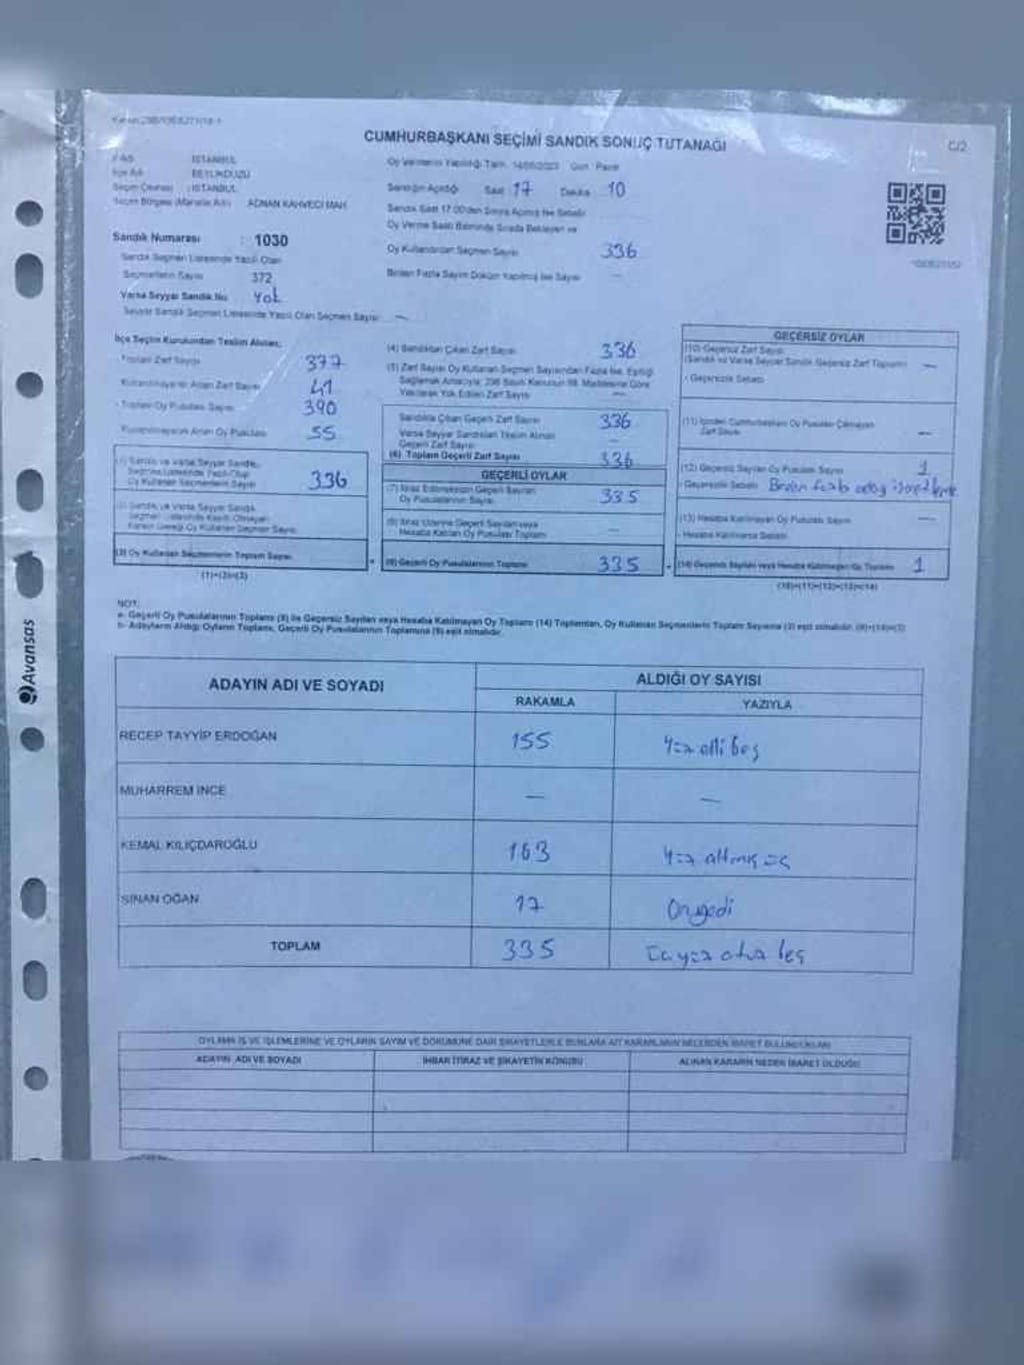 CUMHURBAŞKANI SEÇİMİ SANDIK SONUÇ TUTANAĞI
C/2
İSTANBUL
BEYLİKDÜZÜ
Seçim Çevresi : İSTANBUL
ADNAN KAHVECİ MAH.
Oy Vermenin Yapıldığı Tarih 14/05/2023 Gün Pazar
Sandığın Açıldığı Saat 17 Dakika 10
Sandık Saat 17.00'den Sonra Açılmış İse Sebebi
Oy Verme Saati Bitiminde Sırada Bekleyen ve
Oy Kullandırılan Seçmen Sayısı 336
Birden Fazla Sayım Döküm Yapılmış İse Sayısı —
Sandık Numarası : 1030
Sandık Seçmen Listesinde Yazılı Olan
Seçmenlerin Sayısı 372
Varsa Seyyar Sandık No: Yok
Seyyar Sandık Seçmen Listesinde Yazılı Olan Seçmen Sayısı —
İlçe Seçim Kurulundan Teslim Alınan;
- Toplam Zarf Sayısı 377
Kullanılmayarak Artan Zarf Sayısı 41
- Toplam Oy Pusulası Sayısı 390
Kullanılmayarak Artan Oy Pusulası 55
(1) Sandık ve Varsa Seyyar Sandık
Seçmen Listesinde Yazılı Olup
Oy Kullanan Seçmenlerin Sayısı 336
(2) Sandık ve Varsa Seyyar Sandık
Seçmen Listesinde Kayıtlı Olmayan
Kanun Gereği Oy Kullanan Seçmen Sayısı
(3) Oy Kullanan Seçmenlerin Toplam Sayısı
(1)+(2)=(3)
(4) Sandıktan Çıkan Zarf Sayısı 336
(5) Zarf Sayısı Oy Kullanan Seçmen Sayısından Fazla İse, Eşitliği
Sağlamak Amacıyla; 298 Sayılı Kanunun 98. Maddesine Göre
Yakılarak Yok Edilen Zarf Sayısı —
Sandıkta Çıkan Geçerli Zarf Sayısı 336
Varsa Seyyar Sandıktan Teslim Alınan
Geçerli Zarf Sayısı —
(6) Toplam Geçerli Zarf Sayısı 336
GEÇERLİ OYLAR
(7) İtiraz Edilmeksizin Geçerli Sayılan
Oy Pusulalarının Sayısı 335
(8) İtiraz Üzerine Geçerli Sayılan veya
Hesaba Katılan Oy Pusulası Toplamı —
(9) Geçerli Oy Pusulalarının Toplamı 335
GEÇERSİZ OYLAR
(10) Geçersiz Zarf Sayısı
(Sandık ve Varsa Seyyar Sandık Geçersiz Zarf Toplamı) —
- Geçersizlik Sebebi
(11) İçinden Cumhurbaşkanı Oy Pusulası Çıkmayan
Zarf Sayısı —
(12) Geçersiz Sayılan Oy Pusulası Sayısı 1
- Geçersizlik Sebebi Birden fazla aday işaretleme
(13) Hesaba Katılmayan Oy Pusulası Sayısı —
- Hesaba Katılmama Sebebi
(14) Geçersiz Sayılan veya Hesaba Katılmayan Oy Toplamı 1
(10)+(11)+(12)+(13)=(14)
NOT:
a- Geçerli Oy Pusulalarının Toplamı (9) ile Geçersiz Sayılan veya Hesaba Katılmayan Oy Toplamı (14) Toplamları, Oy Kullanan Seçmenlerin Toplam Sayısına (3) eşit olmalıdır. (9)+(14)=(3)
b- Adayların Aldığı Oyların Toplamı, Geçerli Oy Pusulalarının Toplamına (9) eşit olmalıdır.
ADAYIN ADI VE SOYADI
ALDIĞI OY SAYISI
RAKAMLA YAZIYLA
RECEP TAYYİP ERDOĞAN 155 Yüz elli beş
MUHARREM İNCE — —
KEMAL KILIÇDAROĞLU 163 Yüz altmış üç
SİNAN OĞAN 17 Onyedi
TOPLAM 335 Üçyüz otuz beş
OYLAMA İŞ VE İŞLEMLERİNE VE OYLARIN SAYIM VE DÖKÜMÜNE DAİR ŞİKAYETLERLE BUNLARA AİT KARARLARIN NELERDEN İBARET BULUNDUKLARI
ADAYIN ADI VE SOYADI İHBAR İTİRAZ VE ŞİKAYETİN KONUSU ALINAN KARARIN NEDEN İBARET OLDUĞU
Avansas